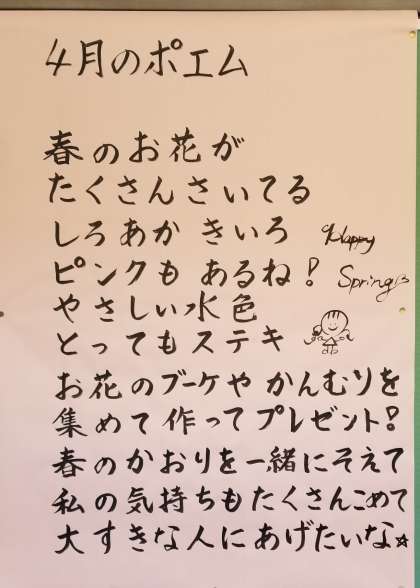 4月のポエム
春のお花が
たくさんさいてる
しろあかきいろ
Happy
ピンクもあるね!
Spring
やさしい水色
とってもステキ
お花のブーケやかんむりを
集めて作ってプレゼント!
春のかおりを一緒にそえて
私の気持ちもたくさんこめて
大すきな人にあげたいな☆